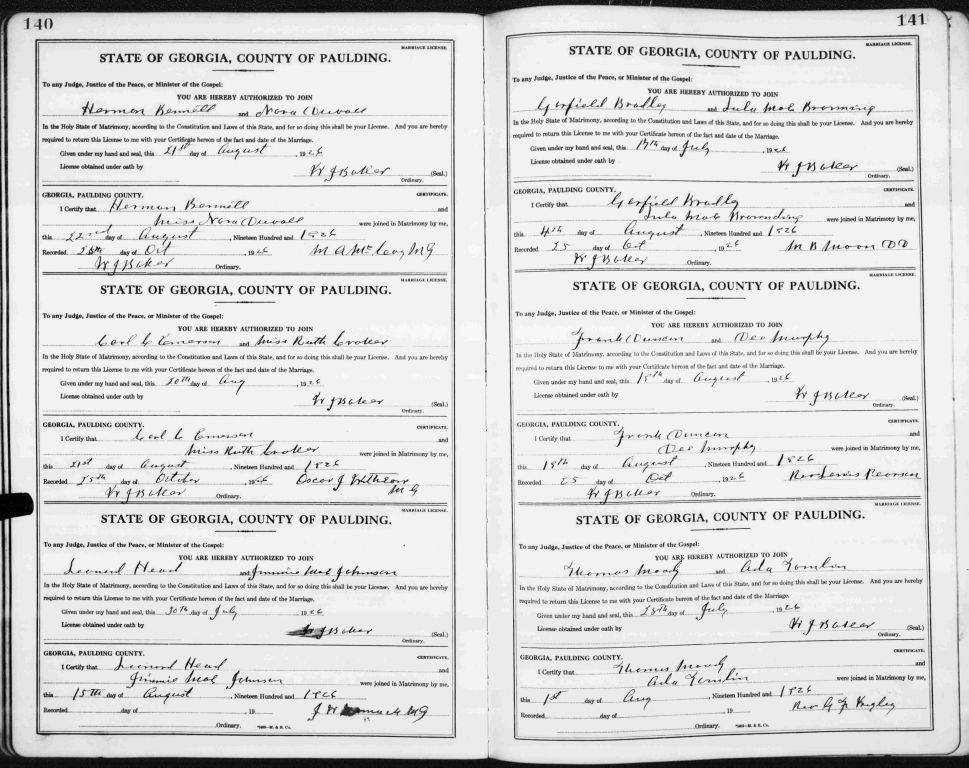 140
MARRIAGE LICENSE.
STATE OF GEORGIA, COUNTY OF PAULDING.
To any Judge, Justice of the Peace, or Minister of the Gospel:
YOU ARE HEREBY AUTHORIZED TO JOIN
Herman Bennett and Nora Duvall
In the Holy State of Matrimony, according to the Constitution and Laws of this State, and for so doing this shall be your License. And you are hereby
required to return this License to me with your Certificate hereon of the fact and date of the Marriage.
Given under my hand and seal, this 21st day of August, 1926
License obtained under oath by
W J Baker (Seal.)
Ordinary.
GEORGIA, PAULDING COUNTY. CERTIFICATE.
I Certify that Herman Bennett and
Miss Nora Duvall were joined in Matrimony by me,
this 22nd day of August, Nineteen Hundred and 1926
Recorded 25th day of Oct 1926 M A McCoy M G
W J Baker Ordinary.
MARRIAGE LICENSE.
STATE OF GEORGIA, COUNTY OF PAULDING.
To any Judge, Justice of the Peace, or Minister of the Gospel:
YOU ARE HEREBY AUTHORIZED TO JOIN
Carl C Emerson and Miss Ruth Croker
In the Holy State of Matrimony, according to the Constitution and Laws of this State, and for so doing this shall be your License. And you are hereby
required to return this License to me with your Certificate hereon of the fact and date of the Marriage.
Given under my hand and seal, this 20th day of Aug, 1926
License obtained under oath by
W J Baker (Seal.)
Ordinary.
GEORGIA, PAULDING COUNTY. CERTIFICATE.
I Certify that Carl C Emerson and
Miss Ruth Croker were joined in Matrimony by me,
this 21st day of August, Nineteen Hundred and 1926
Recorded 25th day of October 1926 Oscar J
W J Baker Ordinary. M G
MARRIAGE LICENSE.
STATE OF GEORGIA, COUNTY OF PAULDING.
To any Judge, Justice of the Peace, or Minister of the Gospel:
YOU ARE HEREBY AUTHORIZED TO JOIN
Leonard Head and Jimmie Mab Johnson
In the Holy State of Matrimony, according to the Constitution and Laws of this State, and for so doing this shall be your License. And you are hereby
required to return this License to me with your Certificate hereon of the fact and date of the Marriage.
Given under my hand and seal, this 30th day of July, 1926
License obtained under oath by
W J Baker (Seal.)
Ordinary.
GEORGIA, PAULDING COUNTY. CERTIFICATE.
I Certify that Leonard Head and
Jimmie Mab Johnson were joined in Matrimony by me,
this 15th day of August, Nineteen Hundred and 1926
Recorded day of 19 J W M G
Ordinary.
141
MARRIAGE LICENSE.
STATE OF GEORGIA, COUNTY OF PAULDING.
To any Judge, Justice of the Peace, or Minister of the Gospel:
YOU ARE HEREBY AUTHORIZED TO JOIN
Garfield Bradley and Lula Mab Browning
In the Holy State of Matrimony, according to the Constitution and Laws of this State, and for so doing this shall be your License. And you are hereby
required to return this License to me with your Certificate hereon of the fact and date of the Marriage.
Given under my hand and seal, this 17th day of July, 1926
License obtained under oath by
W J Baker (Seal.)
Ordinary.
GEORGIA, PAULDING COUNTY. CERTIFICATE.
I Certify that Garfield Bradly and
Lula Mab Brownding were joined in Matrimony by me,
this 4th day of August, Nineteen Hundred and 1926
Recorded 25 day of Oct 1926 M B Moon D D
W J Baker Ordinary.
MARRIAGE LICENSE.
STATE OF GEORGIA, COUNTY OF PAULDING.
To any Judge, Justice of the Peace, or Minister of the Gospel:
YOU ARE HEREBY AUTHORIZED TO JOIN
Frank Duncan and Dee Murphy
In the Holy State of Matrimony, according to the Constitution and Laws of this State, and for so doing this shall be your License. And you are hereby
required to return this License to me with your Certificate hereon of the fact and date of the Marriage.
Given under my hand and seal, this 18th day of August, 1926
License obtained under oath by
W J Baker (Seal.)
Ordinary.
GEORGIA, PAULDING COUNTY. CERTIFICATE.
I Certify that Frank Duncan and
Dee Murphy were joined in Matrimony by me,
this 19th day of August, Nineteen Hundred and 1926
Recorded 25 day of Oct 1926 Rev Lewis Pearson
W J Baker Ordinary.
MARRIAGE LICENSE.
STATE OF GEORGIA, COUNTY OF PAULDING.
To any Judge, Justice of the Peace, or Minister of the Gospel:
YOU ARE HEREBY AUTHORIZED TO JOIN
Thomas Moody and Ada Tomlin
In the Holy State of Matrimony, according to the Constitution and Laws of this State, and for so doing this shall be your License. And you are hereby
required to return this License to me with your Certificate hereon of the fact and date of the Marriage.
Given under my hand and seal, this 28th day of July, 1926
License obtained under oath by
W J Baker (Seal.)
Ordinary.
GEORGIA, PAULDING COUNTY. CERTIFICATE.
I Certify that Thomas Moody and
Ada Tomlin were joined in Matrimony by me,
this 1st day of Aug, Nineteen Hundred and 1926
Recorded day of 19 Rev G F
Ordinary.